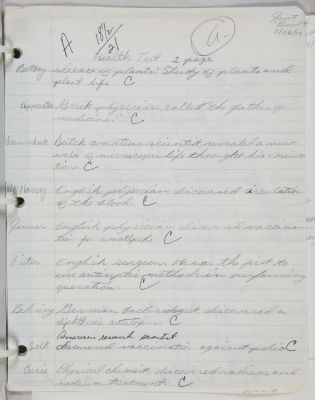 A 18½/21 A-
Health Test 2 page
Botany science of plants: Study of plants and
plant life. C
Greek physician, called the father of
medicine. C
Dutch amateur scientist, revealed a new
world of microscopic life through his
tion. C
Harvey English physician discovered circulation
of the blood. C
Jenner English physician discovered vaccina-
tion for smallpox. C
Lister English surgeon. He was the first to
use antiseptic methods in performing
operation. C
Behring German bacteriologist, discovered a
diphtheria antitoxin. C
American research scientist
Salk discovered vaccination against polio C
Curie Physical chemist, discovered radium and
radium treatment. C